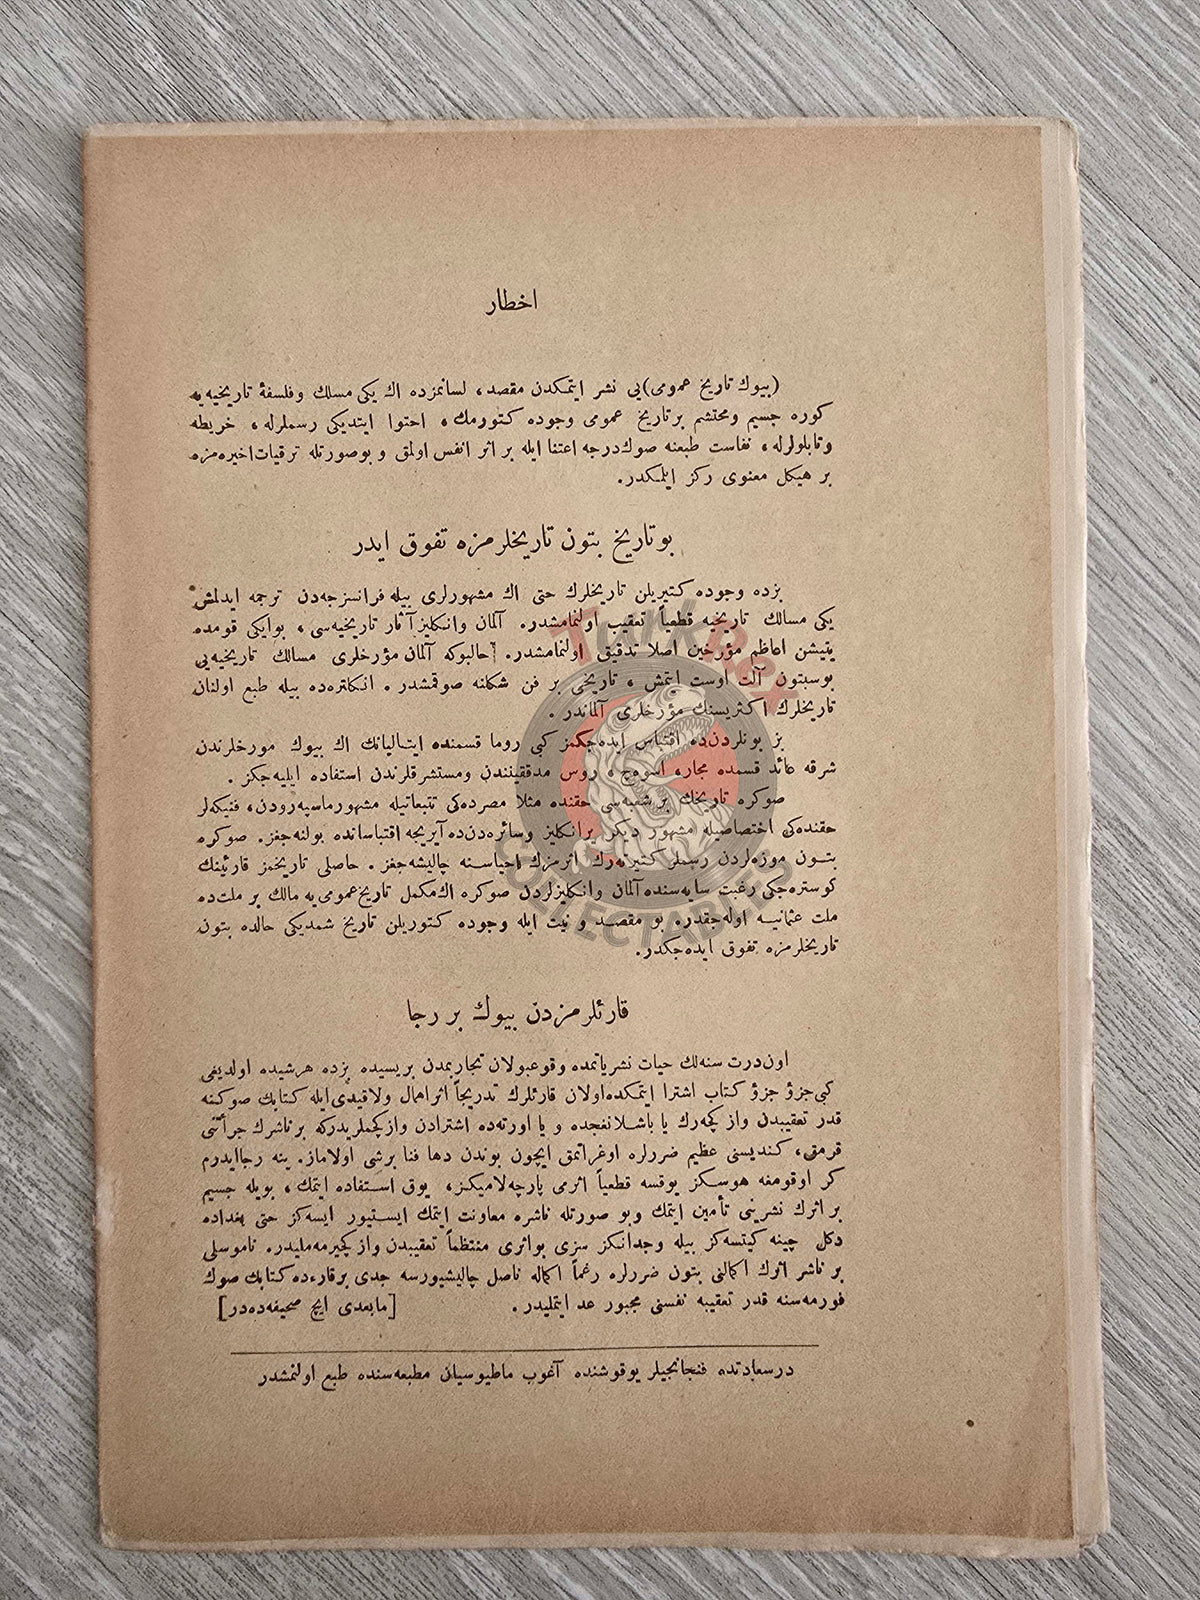 اخطار
(بیوك تاریخ عمومی)یی نشر ایتمکدن مقصد، لسانمزده اك یکی مسلك وفلسفۀ تاریخیه‌یه
کوره جسیم ومحتشم برتاریخ عمومی وجوده کتورمك، احتوا ایتدیکی رسملرله، خریطه
وتابلولرله، نفاست طبعنه صوك‌درجه اعتنا ایله بر اثر انفس اولمق و بوصورتله ترقیات‌اخیره‌مزه
بر هیکل معنوی رکز ایلمکدر.
بوتاریخ بتون تاریخلرمزه تفوق ایدر
بزده وجوده کتیریلن تاریخلرك حتی اك مشهورلری بیله فرانسزجه‌دن ترجمه ایدلمش
یکی مسالك تاریخیه قطعیاً تعقیب اولنمامشدر. آلمان وانکلیز آثار تاریخیه‌سی، بوایکی قومده
یتیشن اعاظم مؤرخین اصلا تدقیق اولنمامشدر. حالبوکه آلمان مؤرخلری مسالك تاریخیه‌یی
بوسبتون آلت اوست ایتمش، تاریخی بر فن شکلنه صوقمشدر. انکلتره‌ده بیله طبع اولنان
تاریخلرك اکثریسنك مؤرخلری آلماندر.
بز بونلردن‌ده اقتباس ایده‌جکمز کبی روما قسمنده ایتالیانك اك بیوك مورخلرندن
شرقه عائد قسمده مجار، اسوه‌چ، روس مدققیتندن ومستشرقلرندن استفاده ایلیه‌جکز.
صوکره تاریخك بر شعبه‌سی حقنده مثلا مصرده‌کی تتبعاتیله مشهورماسپه‌رودن، فنیکه‌لر
حقنده‌کی اختصاصیله مشهور دیکر برانکلیز وسائره‌دن‌ده آیریجه اقتباسانده بولنه‌جغز. صوکره
بتون موزه‌لردن رسملر کتیرته‌رك اثرمزك احیاسنه چالیشه‌جغز. حاصلی تاریخمز قارئینك
کوستره‌جکی رغبت سایه‌سنده آلمان وانکلیزلردن صوکره اك‌مکمل تاریخ‌عمومی‌یه مالك بر ملت‌ده
ملت عثمانیه اوله‌جقدر. بو مقصد و نیت ایله وجوده کتوریلن تاریخ شمدیکی حالده بتون
تاریخلرمزه تفوق ایده‌جکدر.
قارئلرمزدن بیوك بر رجا
اون‌درت سنه‌لك حیات نشریاتمده وقوعبولان تجاربمدن بریسیده بزده هرشیده اولدیغی
کبی‌جزؤ جزؤ کتاب اشترا ایتمکده‌اولان قارئلرك تدریجاً اثراهمال ولاقیدی‌ایله کتابك صوکنه
قدر تعقیبدن واز کچه‌رك یا باشلانغجده و یا اورته‌ده اشترادن وازکچملریدرکه برناشرك جرأتنی
قرمق، کندیسنی عظیم ضررلره اوغراتمق ایچون بوندن دها فنا برشی اولاماز. ینه رجاایدرم
کر اوقومغه هوسکز یوقسه قطعیاً اثرمی پارچه‌لامیکز، یوق استفاده ایتمك، بویله جسیم
بر اثرك نشرینی تأمین ایتمك وبو صورتله ناشره معاونت ایتمك ایستیور ایسه‌کز حتی بغداده
دکل چینه کیتسه‌کز بیله وجدانکز سزی بواثری منتظماً تعقیبدن واز کچیرمه‌ملیدر. ناموسلی
بر ناشر اثرك اکمالنی بتون ضررلره رغماً اکماله ناصل چالیشیورسه جدی برقارءده کتابك صوك
فورمه‌سنه قدر تعقیبه نفسنی مجبور عد ایتملیدر. [مابعدی ایچ صحیفه‌ده‌در]
درسعادتده فنجانجیلر یوقوشنده آغوب ماطیوسیان مطبعه‌سنده طبع اولنمشدر
TurkRex
COLLECTABLES